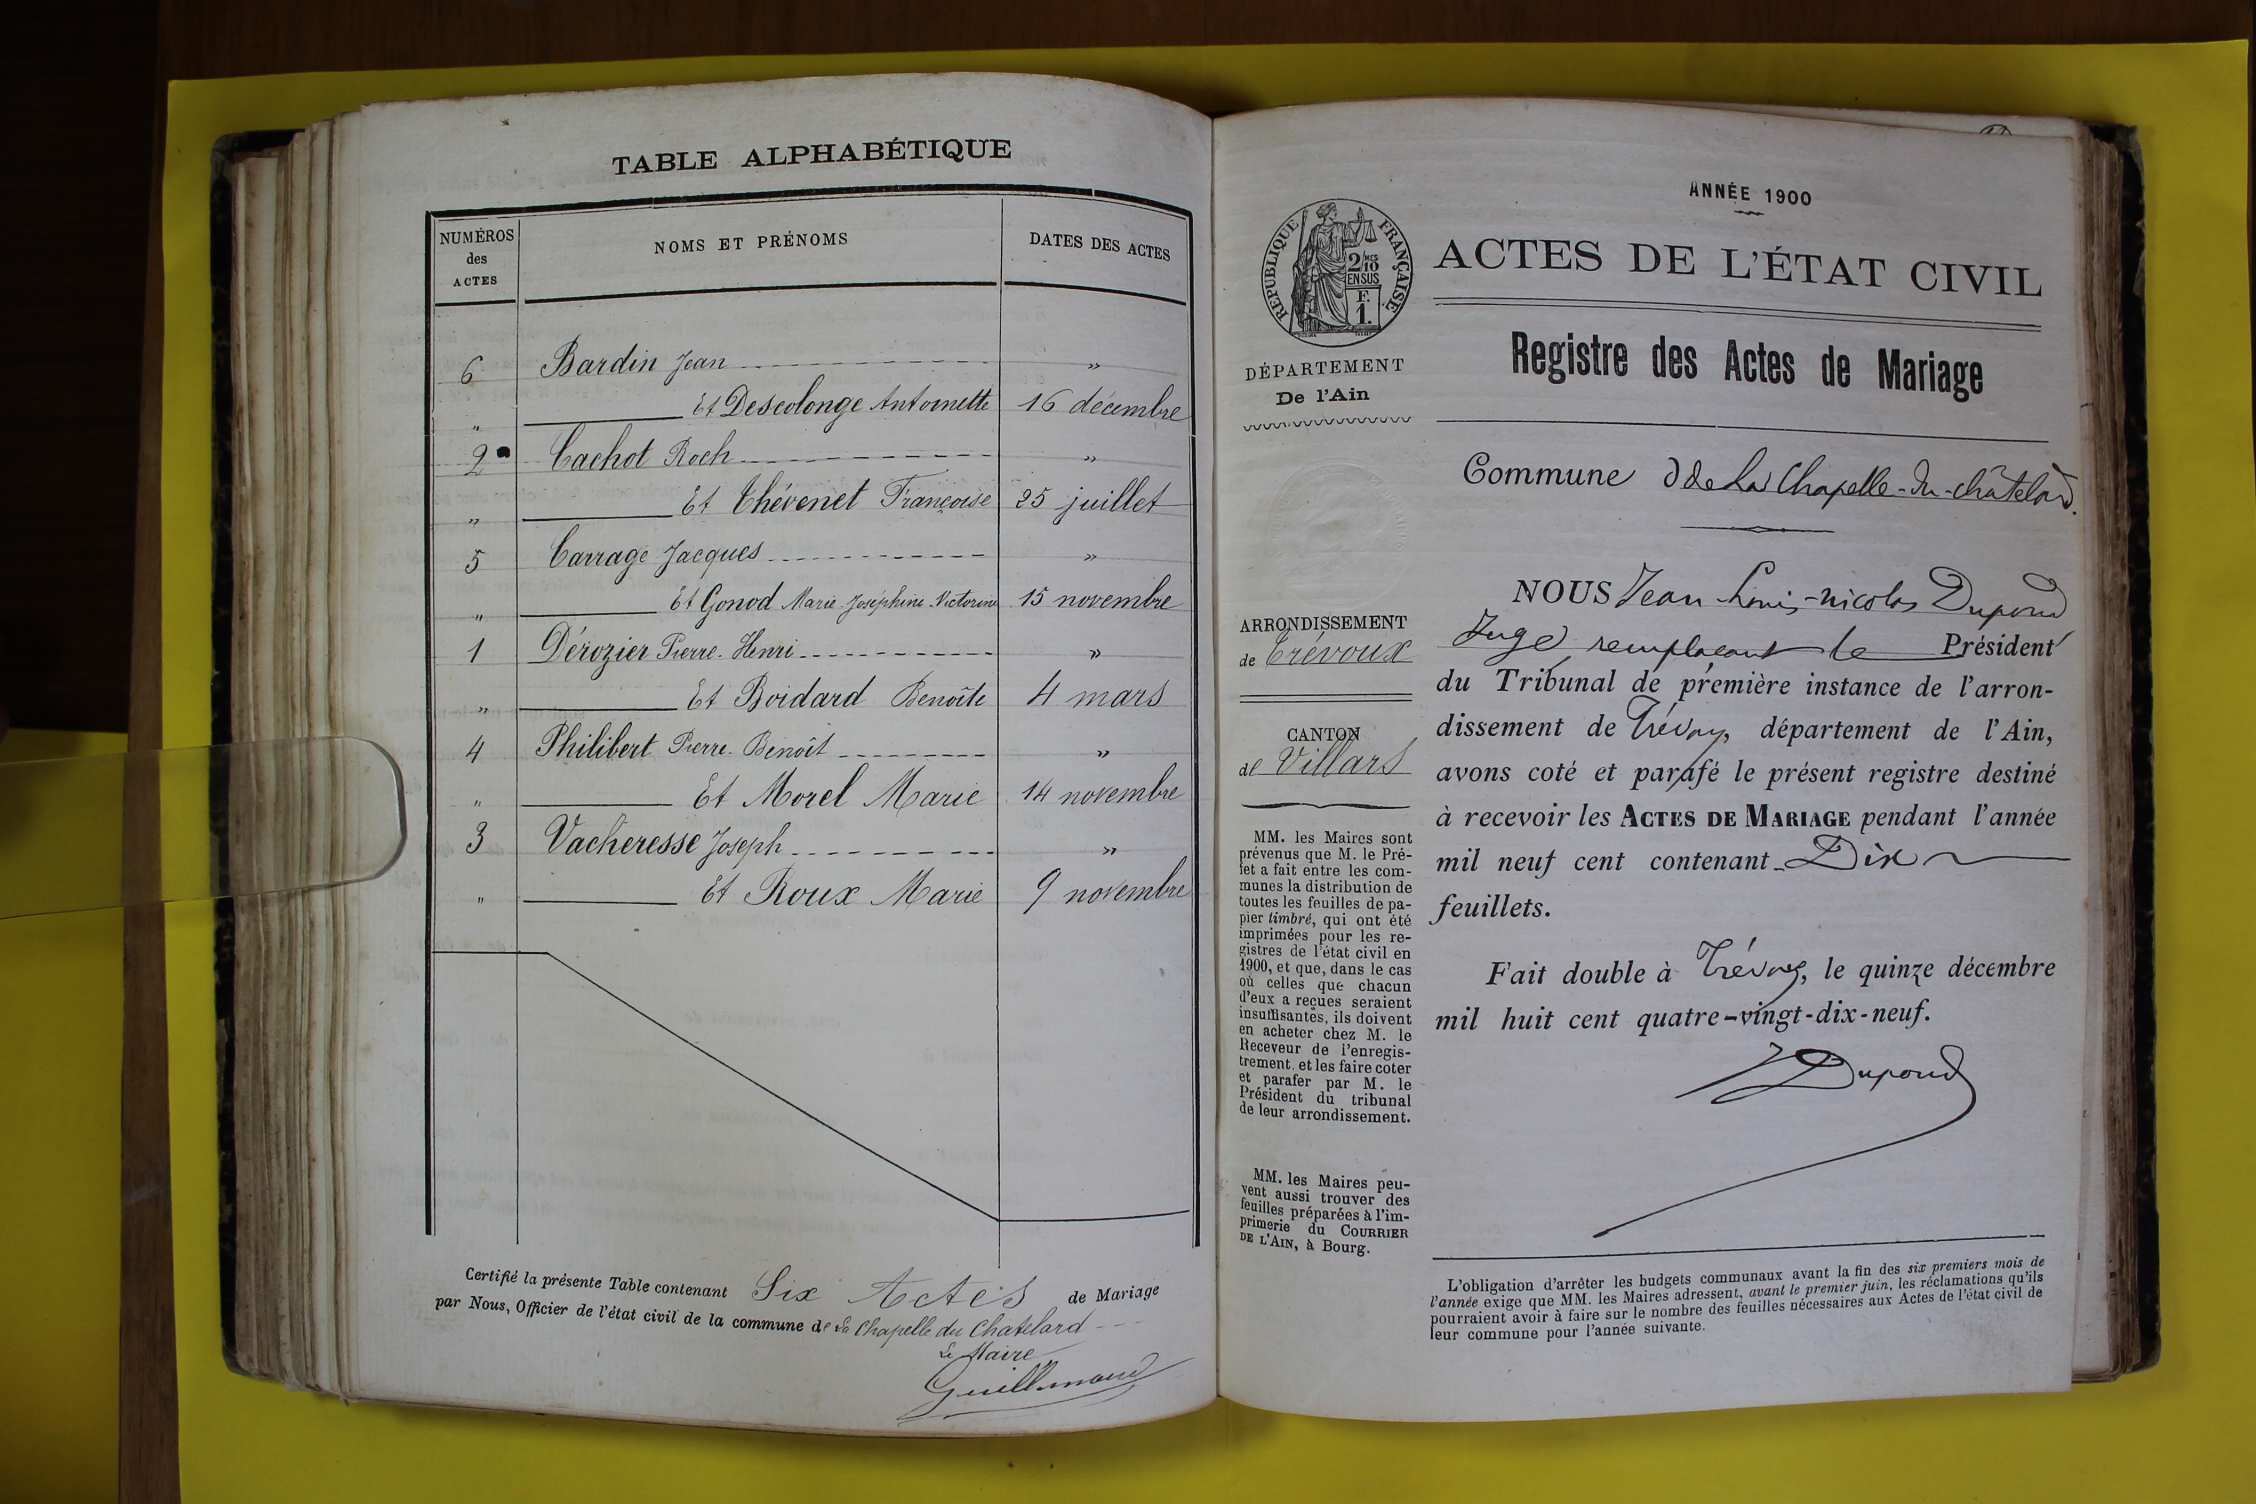 TABLE ALPHABÉTIQUE
NUMÉROS
des
ACTES
NOMS ET PRÉNOMS
DATES DES ACTES
6 Bardin Jean »
„ Et Descolonge Antoinette 16 décembre
2 Cachot Roch »
„ Et Thévenet Françoise 25 juillet
5 Carrage Jacques »
„ Et Gonod Marie-Joséphine-Victorine 15 novembre
1 Dérozier Pierre-Henri »
„ Et Boidard Benoîte 4 mars
4 Philibert Pierre-Benoît »
„ Et Morel Marie 14 novembre
3 Vacheresse Joseph »
„ Et Roux Marie 9 novembre
Certifié la présente Table contenant Six Actes de Mariage
par Nous, Officier de l'état civil de la commune de La Chapelle du Chatelard
Le Maire
Guillemaud
RÉPUBLIQUE FRANÇAISE
2/10 MES
EN SUS
F.
1.
DÉPARTEMENT
De l'Ain
ARRONDISSEMENT
de Trévoux
CANTON
de Villars
MM. les Maires sont
prévenus que M. le Pré-
fet a fait entre les com-
munes la distribution de
toutes les feuilles de pa-
pier timbré, qui ont été
imprimées pour les re-
gistres de l'état civil en
1900, et que, dans le cas
où celles que chacun
d'eux a reçues seraient
insuffisantes, ils doivent
en acheter chez M. le
Receveur de l'enregis-
trement et les faire coter
et parafer par M. le
Président du tribunal
de leur arrondissement.
MM. les Maires peu-
vent aussi trouver des
feuilles préparées à l'im-
primerie du COURRIER
DE L'AIN, à Bourg.
ANNÉE 1900
ACTES DE L'ÉTAT CIVIL
Registre des Actes de Mariage
Commune d de La Chapelle-du-châtelard.
NOUS Jean Louis-nicolas Dupond
Juge remplacant le Président
du Tribunal de première instance de l'arron-
dissement de Trévoux, département de l'Ain,
avons coté et parafé le présent registre destiné
à recevoir les ACTES DE MARIAGE pendant l'année
mil neuf cent contenant Dix
feuillets.
Fait double à Trévoux, le quinze décembre
mil huit cent quatre-vingt-dix-neuf.
Dupond
L'obligation d'arrêter les budgets communaux avant la fin des six premiers mois de
l'année exige que MM. les Maires adressent, avant le premier juin, les réclamations qu'ils
pourraient avoir à faire sur le nombre des feuilles nécessaires aux Actes de l'état civil de
leur commune pour l'année suivante.